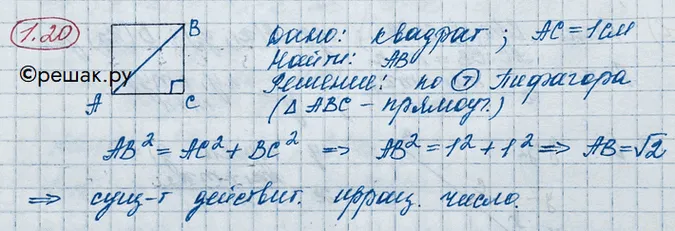 1.20
B
Дано: квадрат; AC = 1 см
Найти: AB
©решак.ру
Решение: по (т) Пифагора
A
C
(△ ABC – прямоуг.)
AB² = AC² + BC² => AB² = 1² + 1² => AB = √2
=> сущ-т действит. иррац. число.